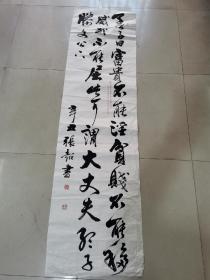 孟子曰富貴不能淫貧賤不能移
威武不能屈此謂大丈夫孟子
滕文公下
辛丑張書